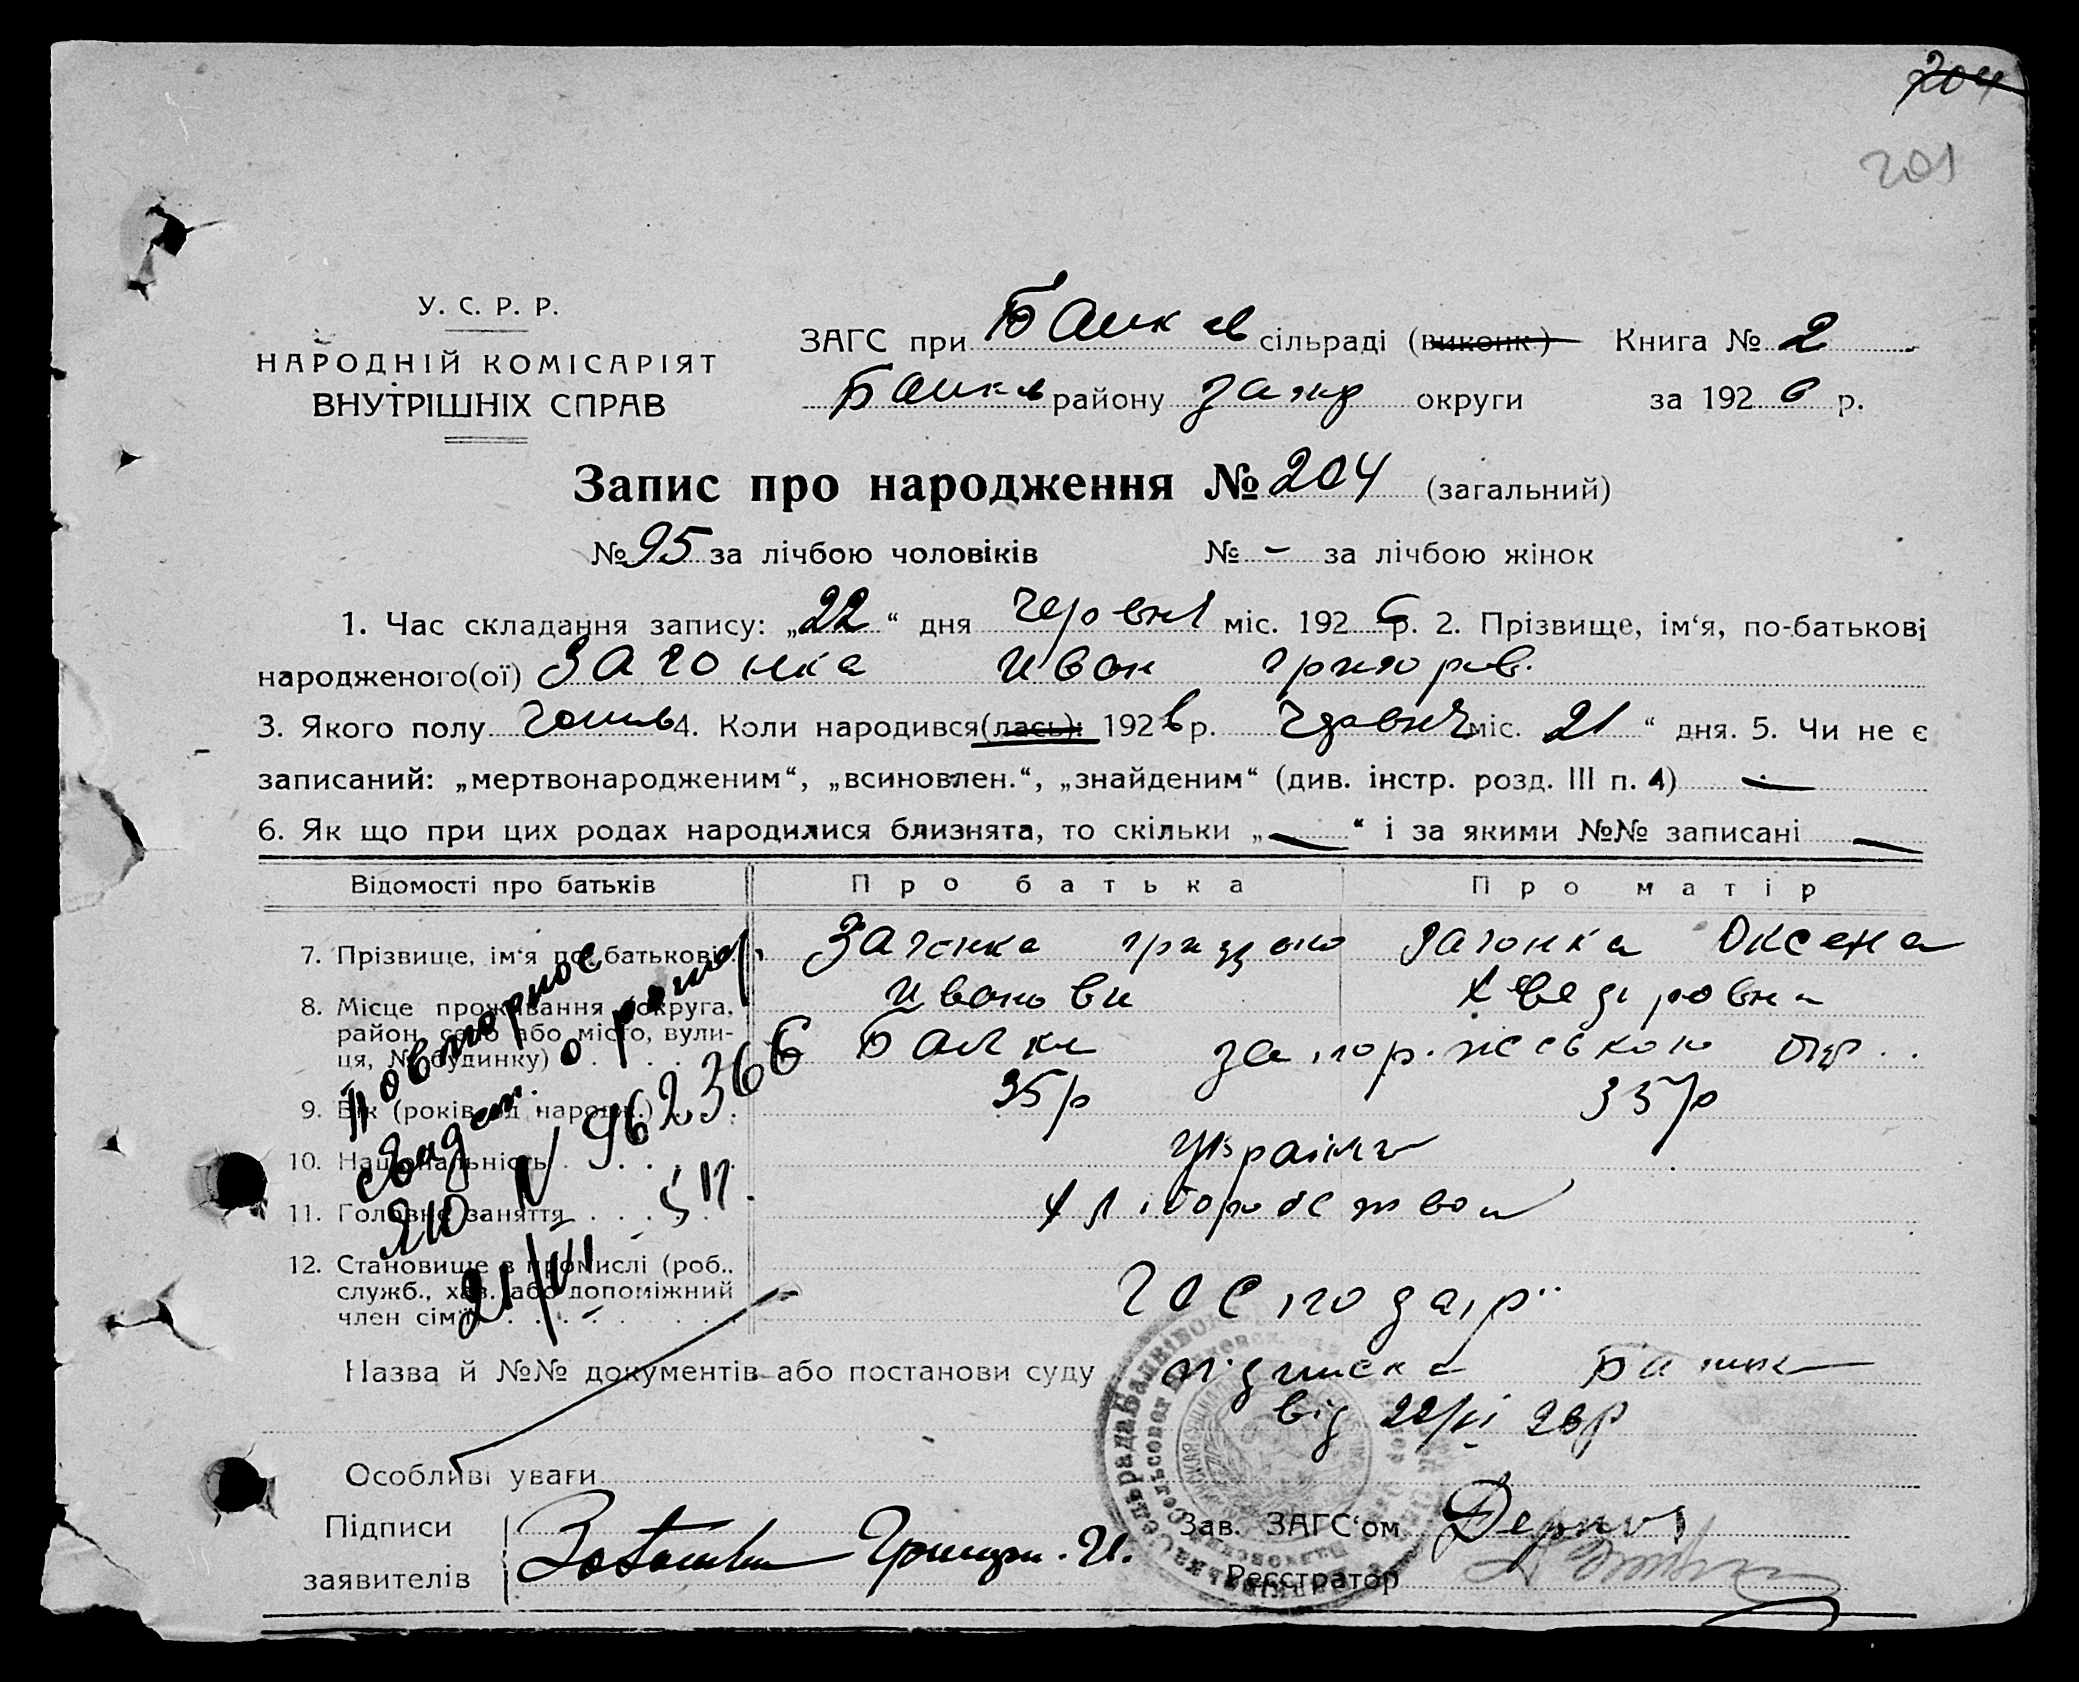 204
201
У. С. Р. Р.
НАРОДНІЙ КОМІСАРІЯТ
ВНУТРІШНІХ СПРАВ
ЗАГС при Балків сільраді (виконк.) Книга № 2
Балків району запор округи за 1926 р.
Запис про народження № 204 (загальний)
№ 95 за лічбою чоловіків № – за лічбою жінок
1. Час складання запису: „22“ дня червня міс. 1926 р. 2. Прізвище, ім‘я, по-батькові
народженого(ої) Иван григоров.
3. Якого полу чолов 4. Коли народився(лась): 1926 р. червня міс. 21 “ дня. 5. Чи не є
записаний: „мертвонародженим“, „всиновлен.“, „знайденим“ (див. інстр. розд. III п. 4) —
6. Як що при цих родах народилися близнята, то скільки „—“ і за якими №№ записані —
Відомості про батьків Про батька Про матір
7. Прізвище, ім‘я по-батькові Оксена
Иванови
8. Місце проживання (округа,
район, село або місто, вули-
ця, № будинку) Балки запоріжською окр.
9. Вік (років од народж.) 35р 35р
10. Національність Україн
11. Головне заняття хліборобство
12. Становище в промислі (роб.,
служб., хаз. або допоміжний
член сім‘ї) господар
Повторное
свидет. о рожд.
ЯЮ N 962366
21/VI 51 г.
Назва й №№ документів або постанови суду підписка батька
від 22/VI 26р
Особливі уваги
Підписи
заявителів
Зав. ЗАГС‘ом
Реєстратор